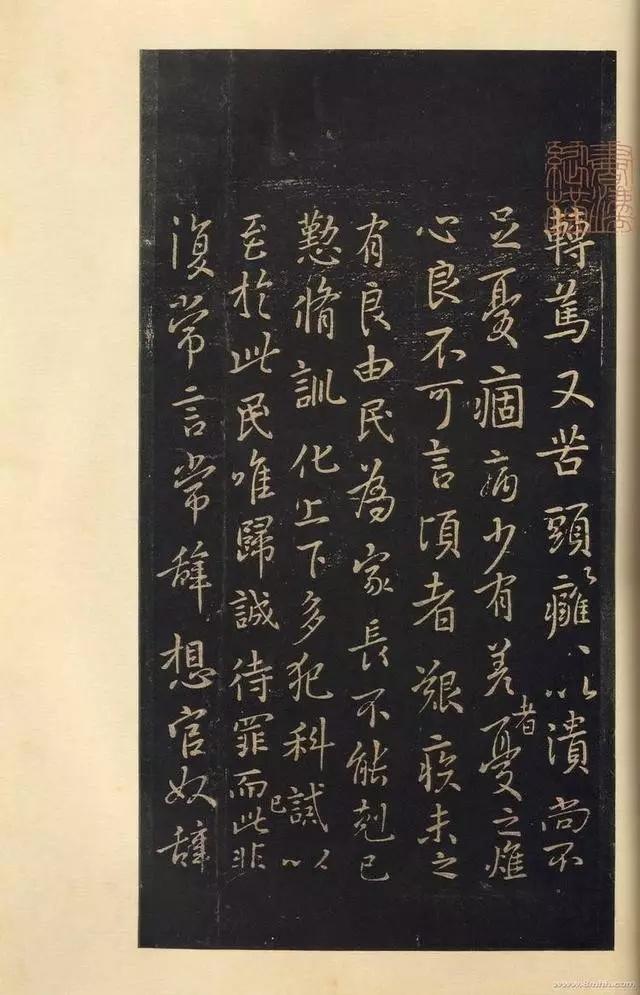 轉篤又苦頭癰〻以潰尚不
足憂痼病少有差者憂之燋
心良不可言頃者艱疾未之
有良由民為家長不能剋己
懃脩訓化上下多犯科誡以
至於此民唯歸誠待罪而已此非
復常言常辭想官奴辭
www.8mhh.com